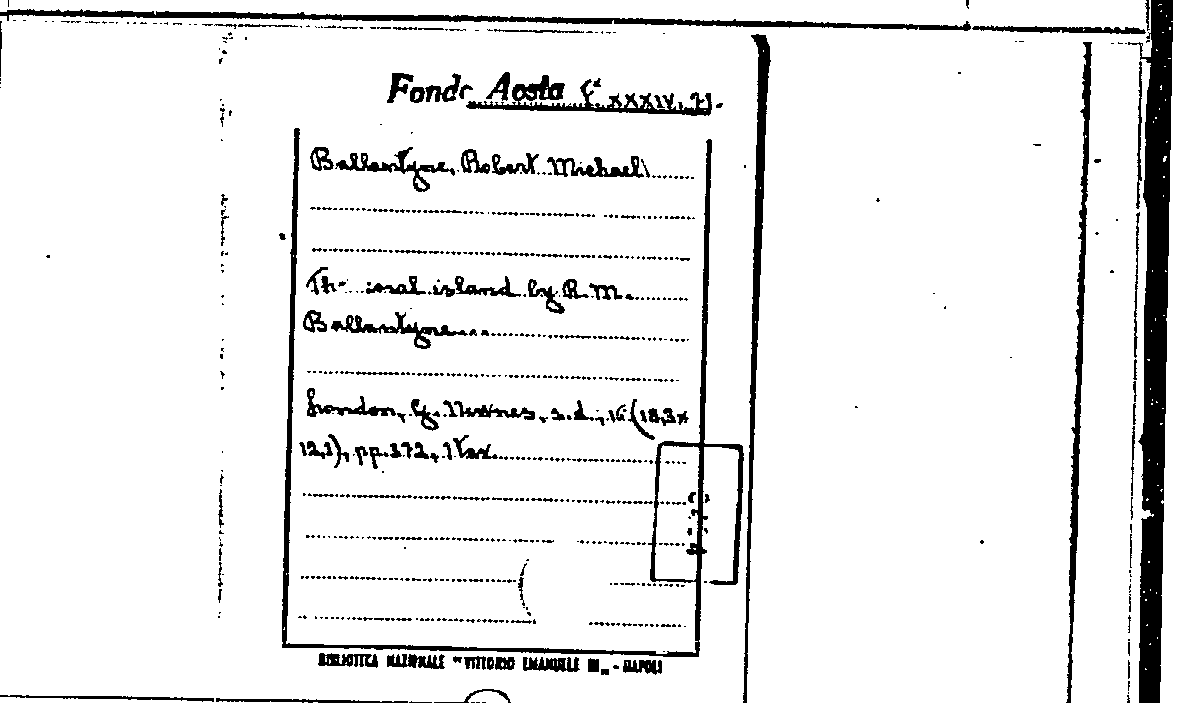 Fondo Aosta XXXIV.
Ballantyne, Robert Michael
coral island by R. M.
Ballantyne...
London, G. Newnes, s.d., 16 (18,3x
12,1), pp. 372, 1 tav.
BIBLIOTECA NAZIONALE "VITTORIO EMANUELE III„ - NAPOLI